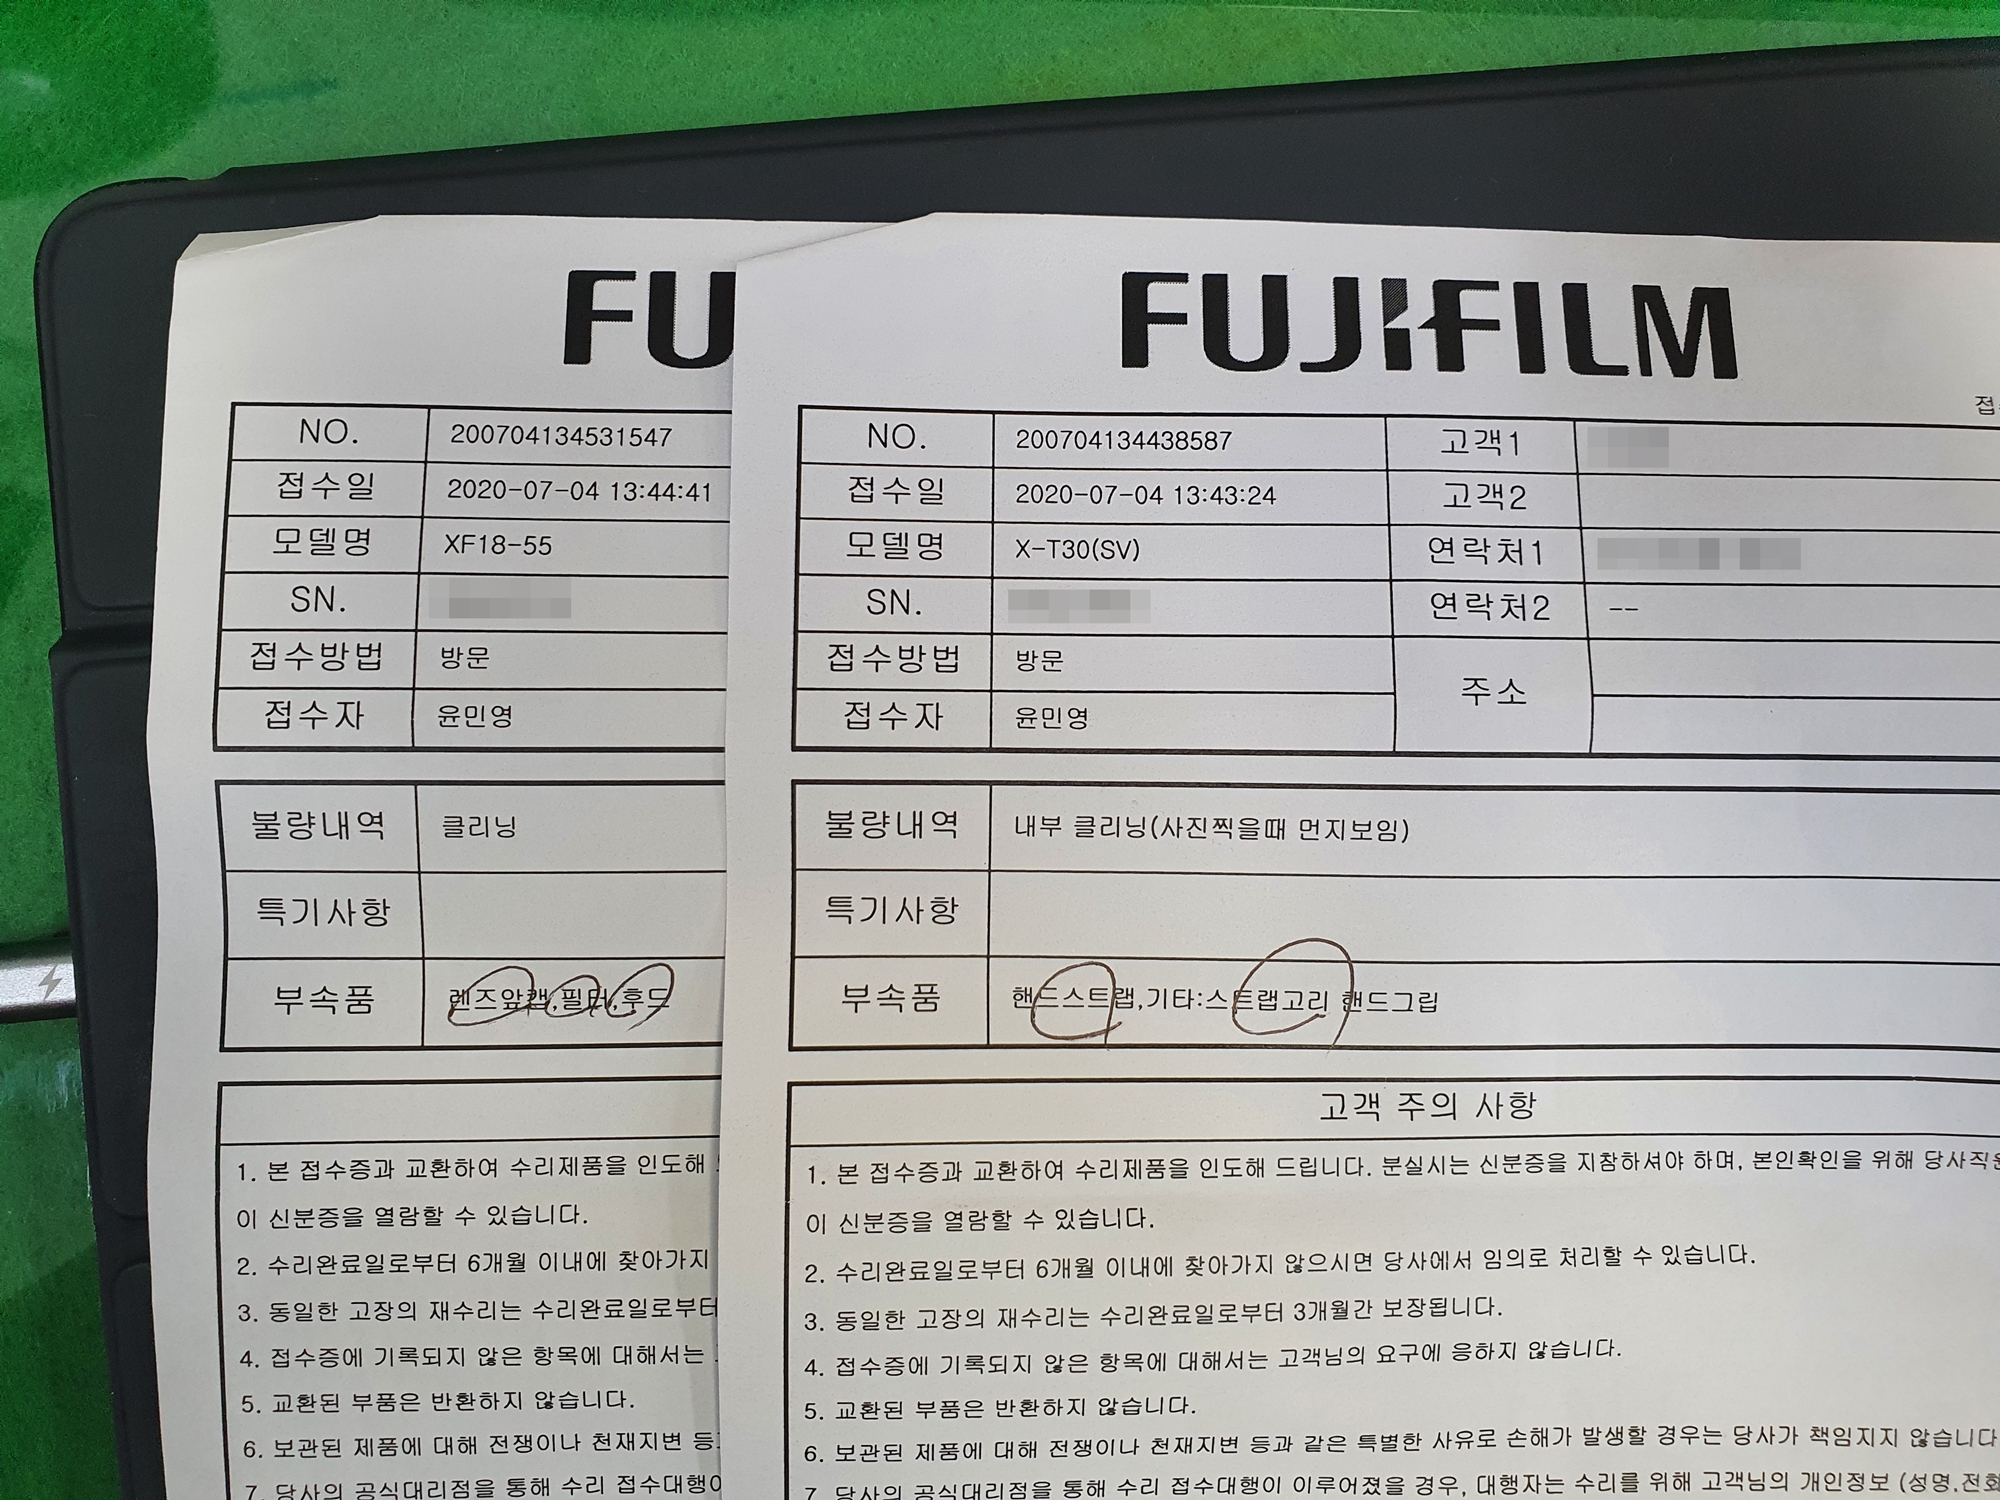 FU
NO. 200704134531547
접수일 2020-07-04 13:44:41
모델명 XF18-55
SN.
접수방법 방문
접수자 윤민영
불량내역 클리닝
특기사항
부속품 렌즈앞캡,필터,후드
1. 본 접수증과 교환하여 수리제품을 인도해
이 신분증을 열람할 수 있습니다.
2. 수리완료일로부터 6개월 이내에 찾아가지
3. 동일한 고장의 재수리는 수리완료일로부터
4. 접수증에 기록되지 않은 항목에 대해서는
5. 교환된 부품은 반환하지 않습니다.
6. 보관된 제품에 대해 전쟁이나 천재지변 등
7. 당사의 공식대리점을 통해 수리 접수대행이
FUJIFILM
접
NO. 200704134438587 고객1
접수일 2020-07-04 13:43:24 고객2
모델명 X-T30(SV) 연락처1
SN. 연락처2 --
접수방법 방문 주소
접수자 윤민영
불량내역 내부 클리닝(사진찍을때 먼지보임)
특기사항
부속품 핸드스트랩,기타:스트랩고리 핸드그립
고객 주의 사항
1. 본 접수증과 교환하여 수리제품을 인도해 드립니다. 분실시는 신분증을 지참하셔야 하며, 본인확인을 위해 당사직원
이 신분증을 열람할 수 있습니다.
2. 수리완료일로부터 6개월 이내에 찾아가지 않으시면 당사에서 임의로 처리할 수 있습니다.
3. 동일한 고장의 재수리는 수리완료일로부터 3개월간 보장됩니다.
4. 접수증에 기록되지 않은 항목에 대해서는 고객님의 요구에 응하지 않습니다.
5. 교환된 부품은 반환하지 않습니다.
6. 보관된 제품에 대해 전쟁이나 천재지변 등과 같은 특별한 사유로 손해가 발생할 경우는 당사가 책임지지 않습니다
7. 당사의 공식대리점을 통해 수리 접수대행이 이루어졌을 경우, 대행자는 수리를 위해 고객님의 개인정보 (성명,전화